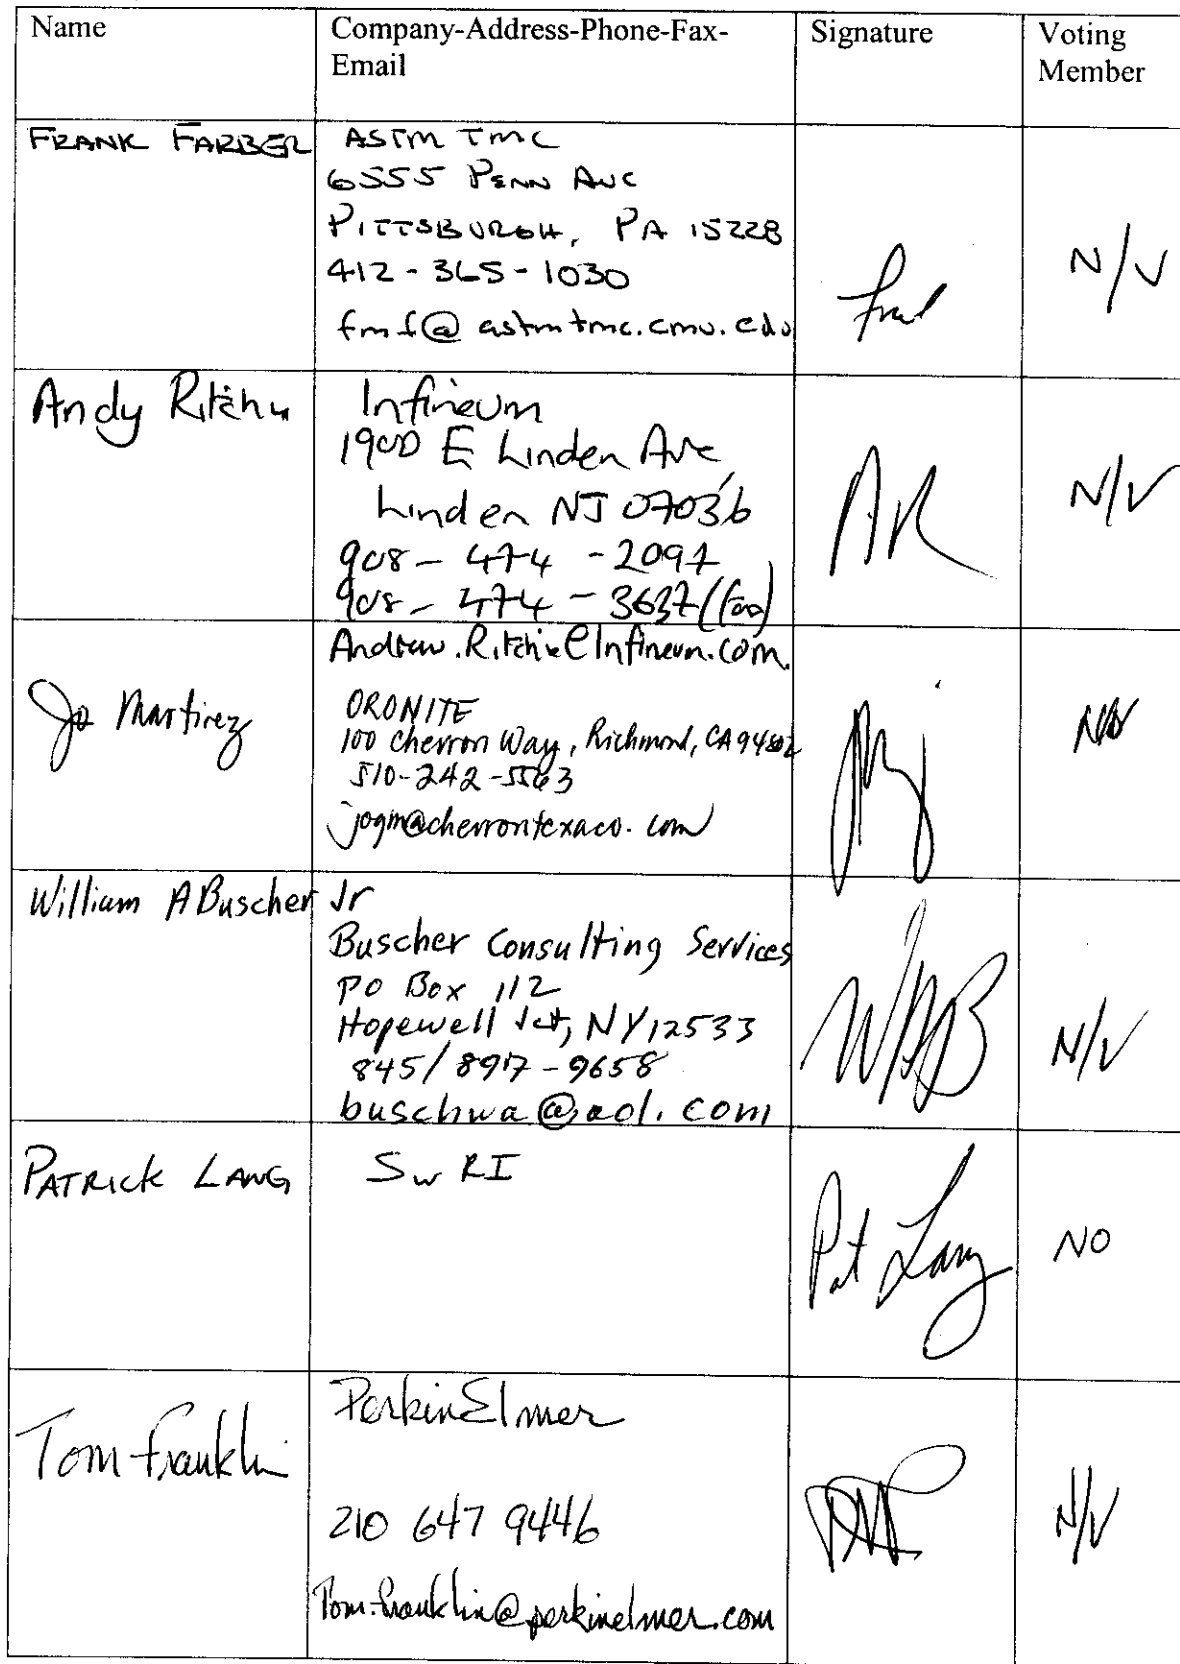 Name
Company-Address-Phone-Fax-
Email
Signature
Voting
Member
FRANK FARBER
ASTM TMC
6555 PENN AVE
PITTSBURGH, PA 15228
412-365-1030
fmf@astmtmc.cmu.edu
N/V
Andy Ritchie
Infineum
1900 E Linden Ave,
Linden NJ 07036
908-474-2097
908-474-3637 (Fax)
Andrew.Ritchie@Infineum.com.
AR
N/V
Jo Martinez
ORONITE
100 Chevron Way, Richmond, CA 94802
510-242-5563
jogm@chevrontexaco.com
William A Buscher Jr
Buscher Consulting Services
PO Box 112
Hopewell Jct, NY 12533
845/897-9658
buschwa@aol.com
WAB
N/V
PATRICK LANG
SwRI
Pat Lang
NO
Tom Franklin
PerkinElmer
210 647 9446
Tom.franklin@perkinelmer.com
N/V